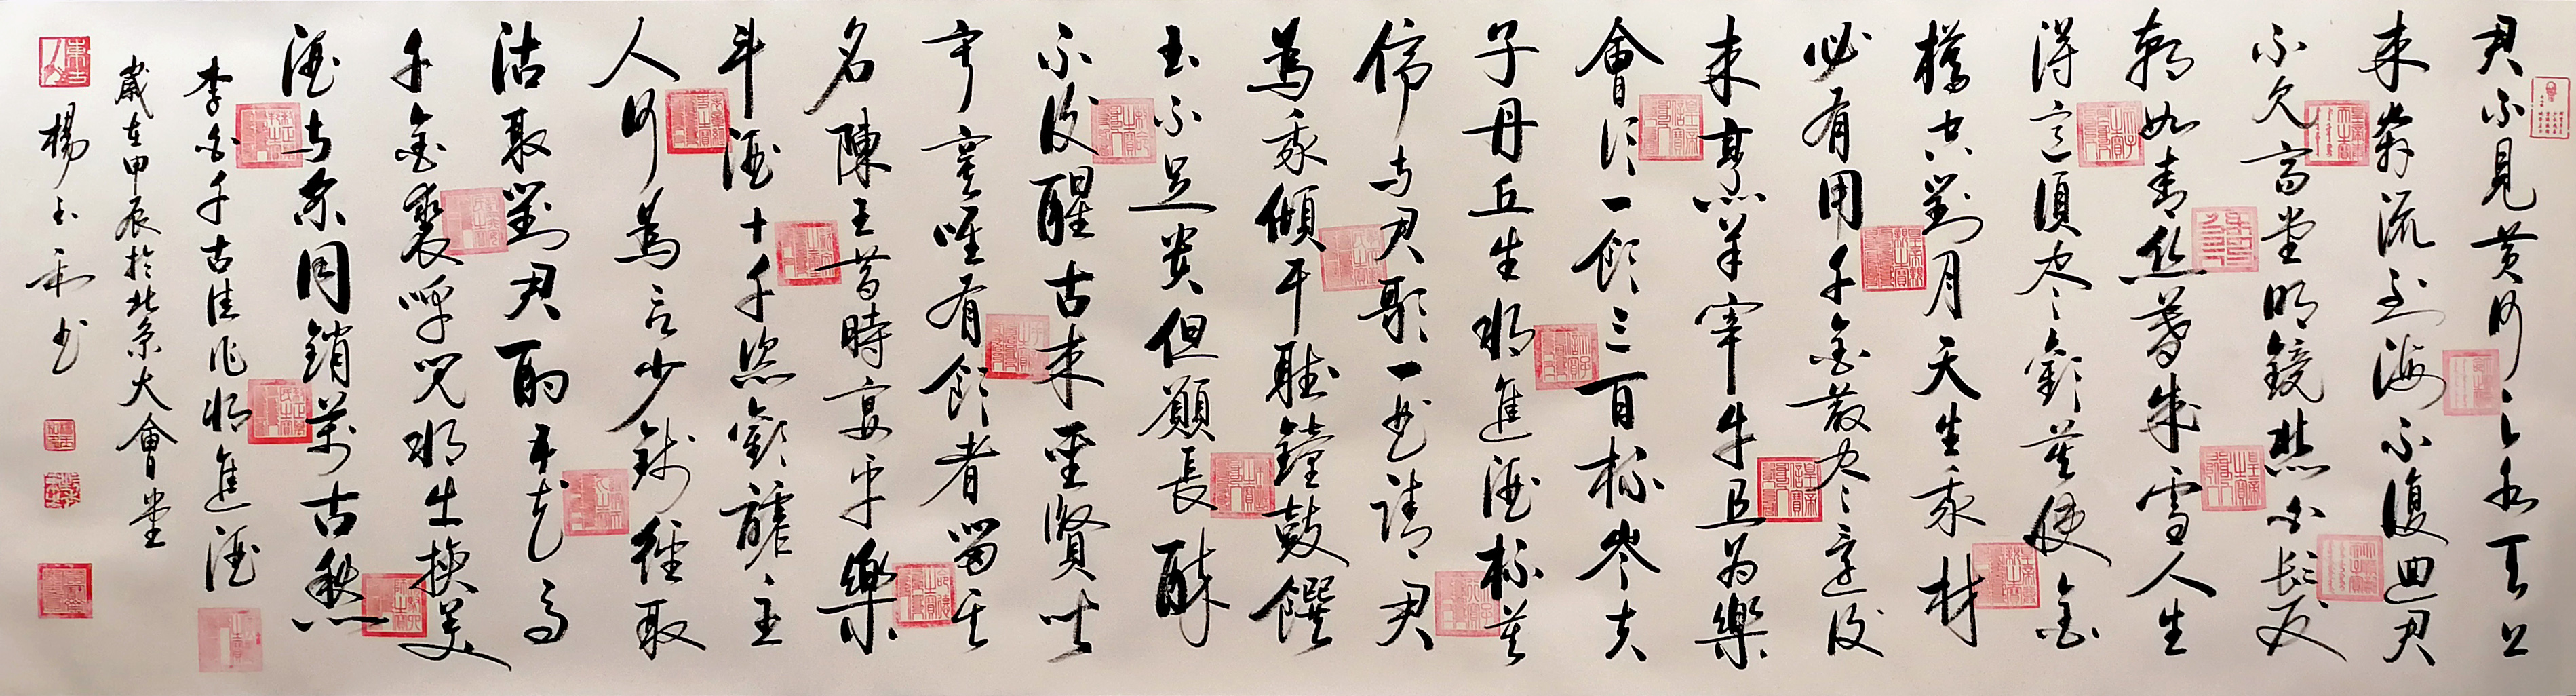 君不見黃河之水天上
来奔流到海不復迴君
不见高堂明鏡悲白髮
朝如青丝暮成雪人生
得意須尽歡莫使金
樽空對月天生我材
必有用千金散尽還復
来烹羊宰牛且为樂
會须一飲三百杯岑夫
子丹丘生將進酒杯莫
停与君歌一曲请君
為我傾耳聴鐘鼓饌
玉不足贵但願長醉
不復醒古来聖賢皆
寂寞唯有飲者留其
名陳王昔時宴平樂
斗酒十千恣歡謔主
人何為言少錢径取
沽取對君酌五花馬
千金裘呼兒將出換美
酒与尔同銷萬古愁
李白千古佳作將進酒
歲在甲辰於北京大會堂
楊玉和书